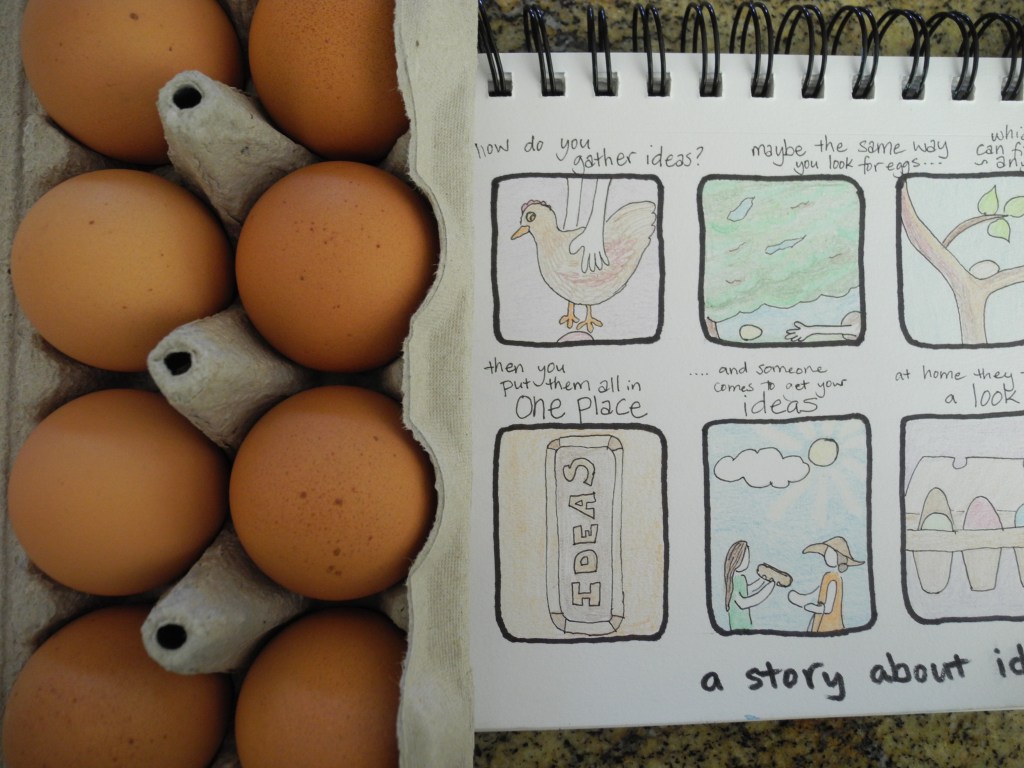 how do you
gather ideas?
maybe the same way
you look for eggs...
can
then you
put them all in
one place
.... and someone
comes to get your
ideas
at home they
a look
IDEAS
a story about